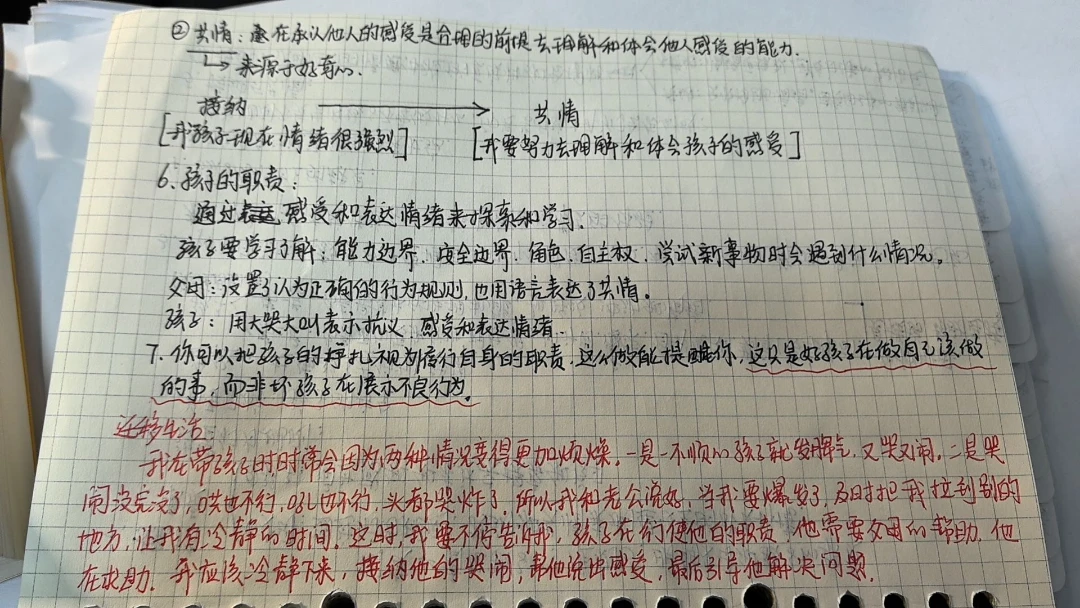 ②共情：意在承认他人的感受是合理的前提去理解和体会他人感受的能力.
来源于好奇心.
接纳 共情
[我孩子现在情绪很强烈] [我要努力去理解和体会孩子的感受]
6.孩子的职责：
通过 感受和表达情绪来探索和学习.
孩子要学习了解：能力边界.安全边界.角色.自主权.尝试新事物时会遇到什么情况。
父母：设置了认为正确的行为规则,也用语言表达了共情。
孩子：用大哭大叫表示抗议.感受和表达情绪.
7.你可以把孩子的挣扎视为履行自身的职责.这么做能提醒你,这只是好孩子在做自己该做
的事,而非坏孩子在展示不良行为。
迁移生活
我在带孩子时时常会因为两种情况变得更加烦燥.一是一不顺心孩子就发脾气,又哭又闹.二是哭
闹没完没了,哄也不行,吼也不行,头都哭炸了.所以我和老公说好,当我要爆发了,及时把我拉到别的
地方,让我有冷静的时间.定时,我要不停告诉我,孩子在行使他的职责,他需要父母的帮助,他
在求助.我应该冷静下来,接纳他的哭闹,帮他说出感受,最后引导他解决问题.